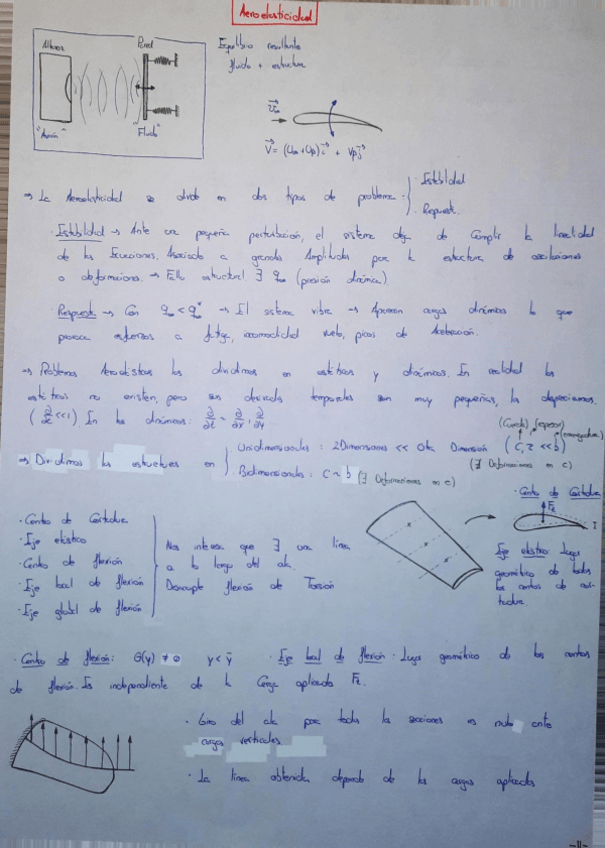 Aeroelasticidad
Altavoz Panel
"Acción" "Fluido"
Equilibrio resultante
fluido + estructura
U∞
V = (U∞+Up)i + Vpj
→ La Aeroelasticidad se divide en dos tipos de problema
· Estabilidad
· Respuesta
· Estabilidad → Ante una pequeña perturbación, el sistema deja de cumplir la linealidad
de las Ecuaciones. Asociado a grandes Amplitudes por la estructura de oscilaciones
o deformaciones. → Fallo estructural ∃ q∞ (presión dinámica)
Respuesta → Con q∞ < q∞* → El sistema vibra → Aparecen cargas dinámicas lo que
provoca esfuerzos a fatiga, incomodidad vuelo, picos de Aceleración.
→ Problemas Aeroelásticos los dividimos en estáticos y dinámicos. En realidad los
estáticos no existen, pero sus derivadas temporales son muy pequeñas, las despreciamos.
(∂/∂t <<1). En los dinámicos: ∂/∂t ~ ∂/∂x, ∂/∂y
(Cuerda) (espesor) (envergadura)
→ Dividimos las estructuras en
Unidimensionales : 2 Dimensiones << Otra Dimensión (C, τ << b)
(∄ Deformaciones en c)
Bidimensionales : C ~ b (∃ Deformaciones en c)
· Centro de Cortadura
· Eje elástico
· Centro de flexión
· Eje local de flexión
· Eje global de flexión
Nos interesa que ∃ una línea
a lo largo del ala.
Desacople flexión de Torsión
· Centro de Cortadura
Fz
Eje elástico: Lugar
geométrico de todos
los centros de cor-
tadura.
· Centro de flexión: θ(y) ≠ 0 y < ȳ · Eje local de flexión · Lugar geométrico de los centros
de flexión. Es independiente de la Carga aplicada Fz.
· Giro del ala para todas las secciones es nulo ante
cargas verticales
· La línea obtenida depende de las cargas aplicadas